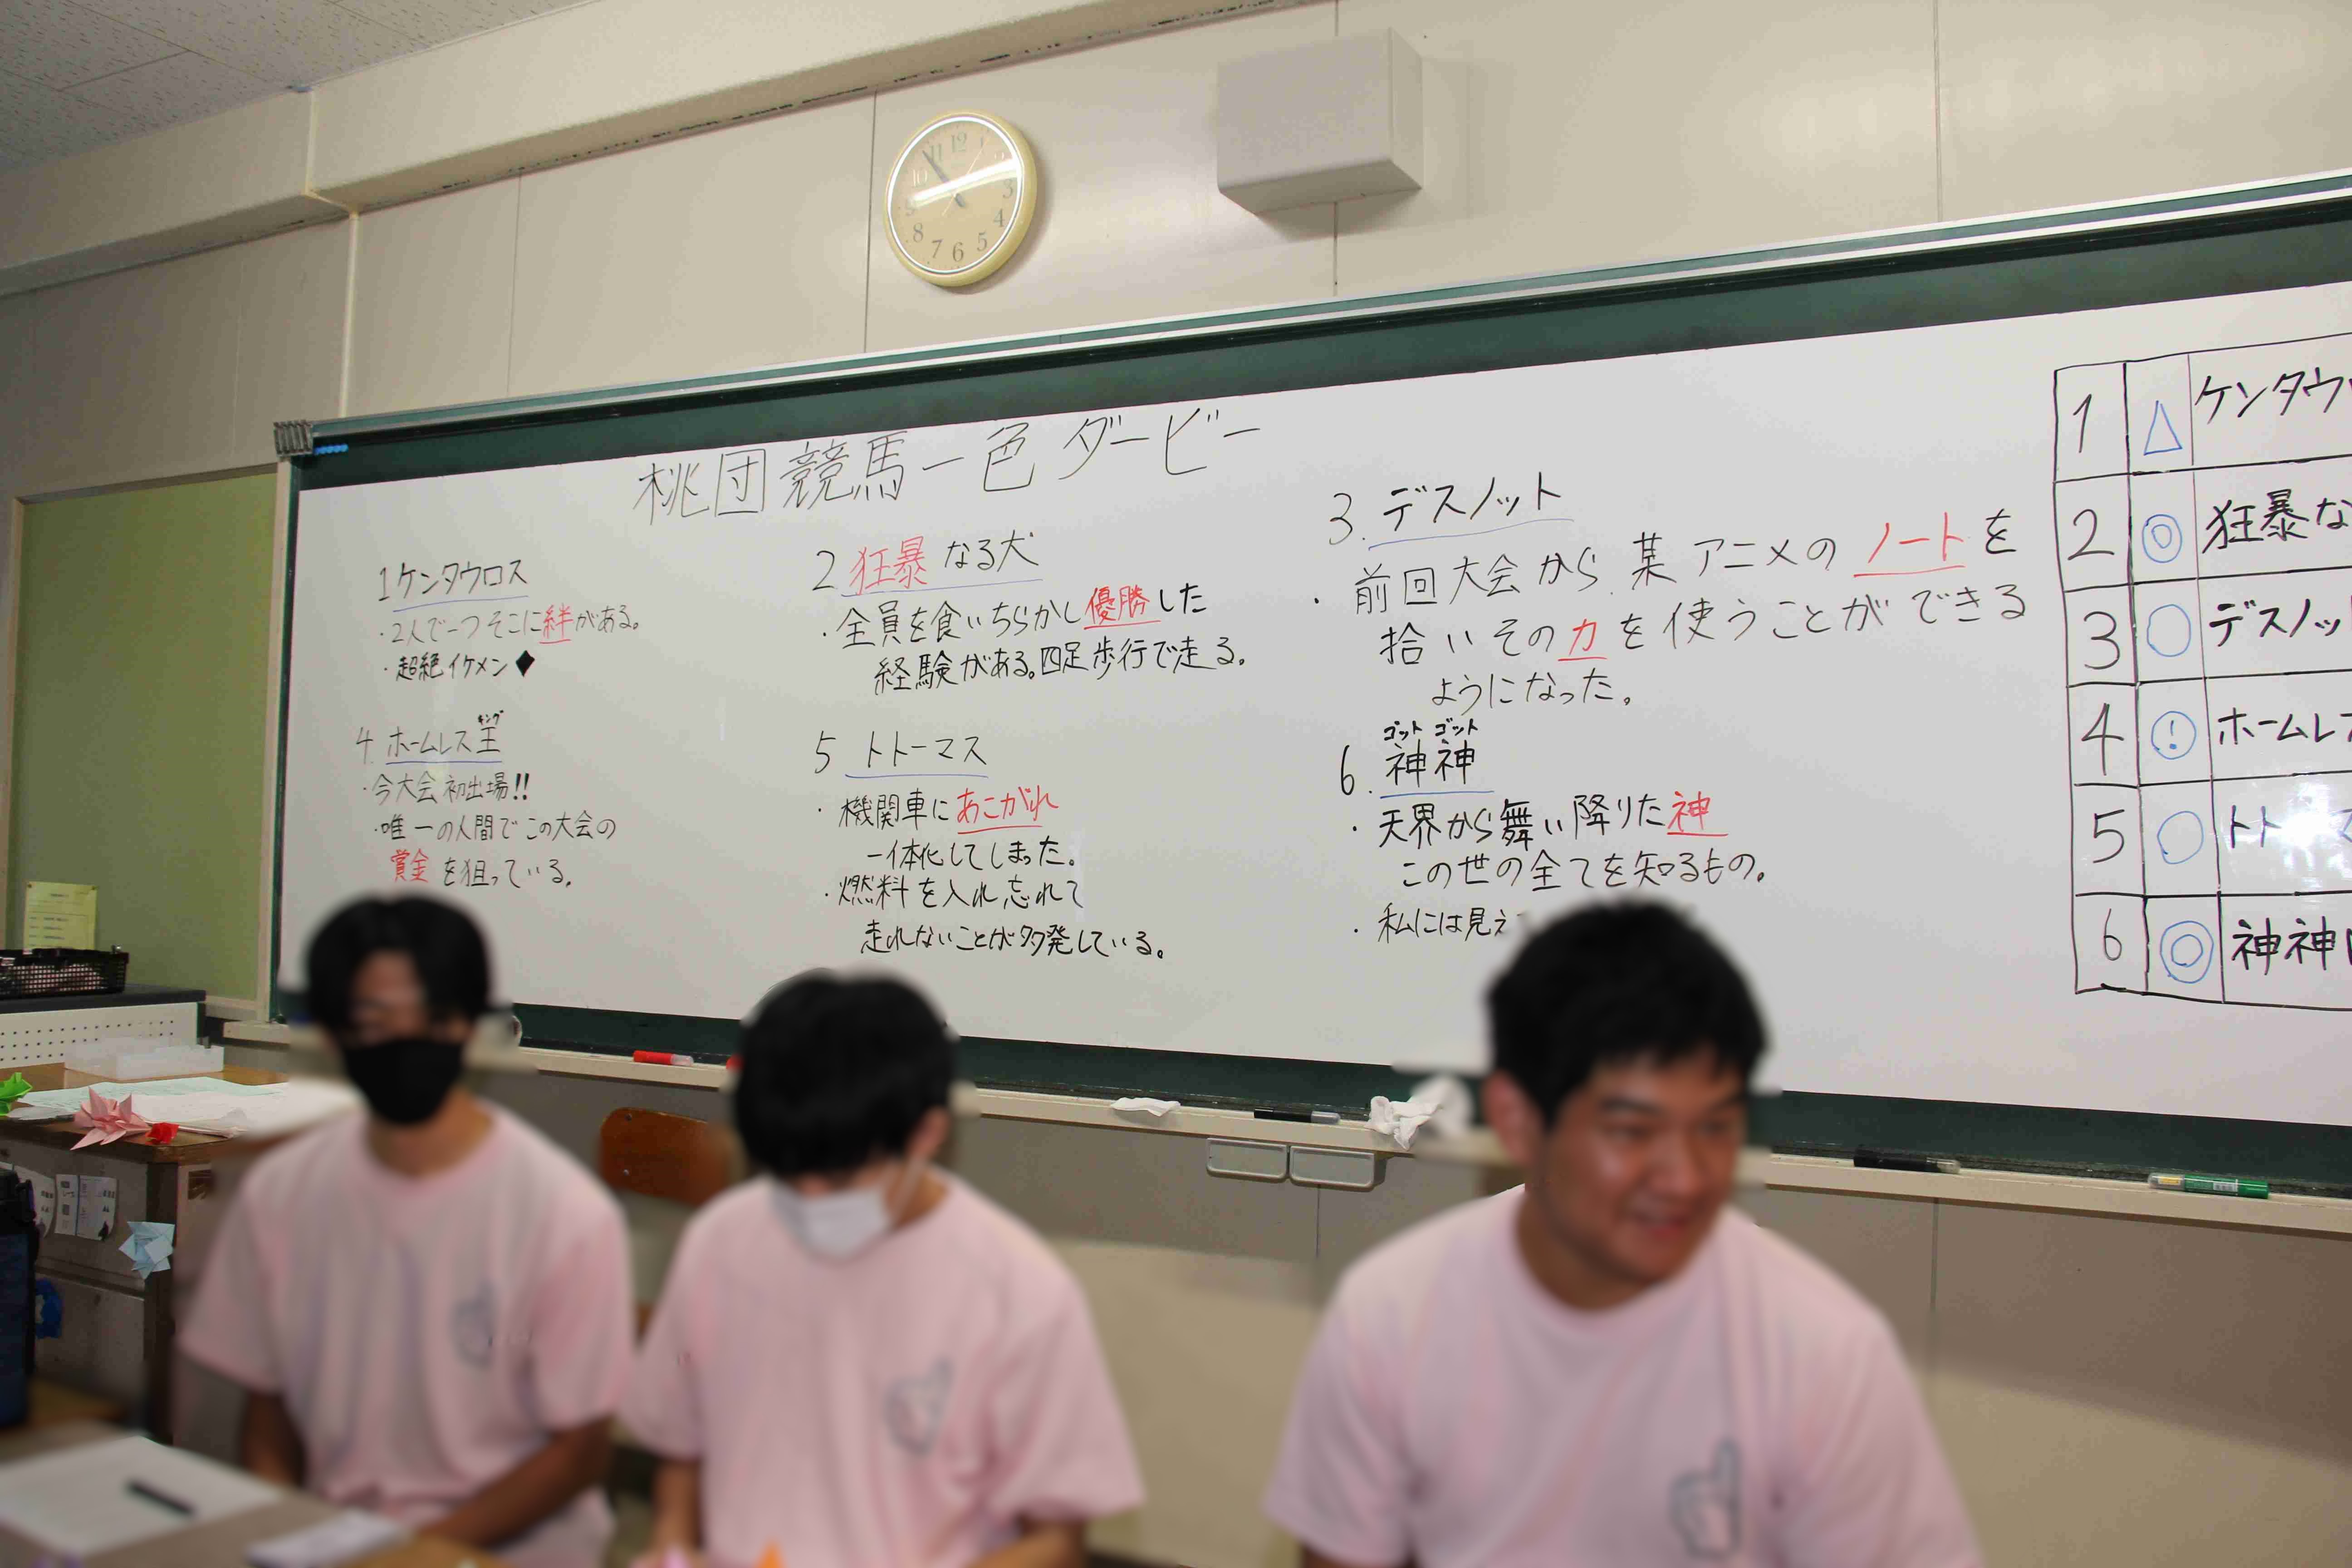 桃団競馬一色ダービー
1 ケンタウロス
・2人で一つそこに絆がある。
・超絶イケメン◆
2 狂暴なる犬
・全員を食いちらかし優勝した
経験がある。四足歩行で走る。
3. デスノット
・前回大会から某アニメのノートを
拾いその力を使うことができる
ようになった。
キング
4. ホームレス王
・今大会初出場!!
・唯一の人間でこの大会の
賞金を狙っている。
5 トトーマス
・機関車にあこがれ
一体化してしまった。
・燃料を入れ忘れて
走れないことが多発している。
ゴット ゴット
6. 神神
・天界から舞い降りた神
この世の全てを知るもの。
・私には見え
1 △ ケンタウ
2 ◎ 狂暴な
3 ○ デスノッ
4 ! ホームレ
5 ○ トト
6 ◎ 神神
12
11
10
9
3
8
4
7
6
5